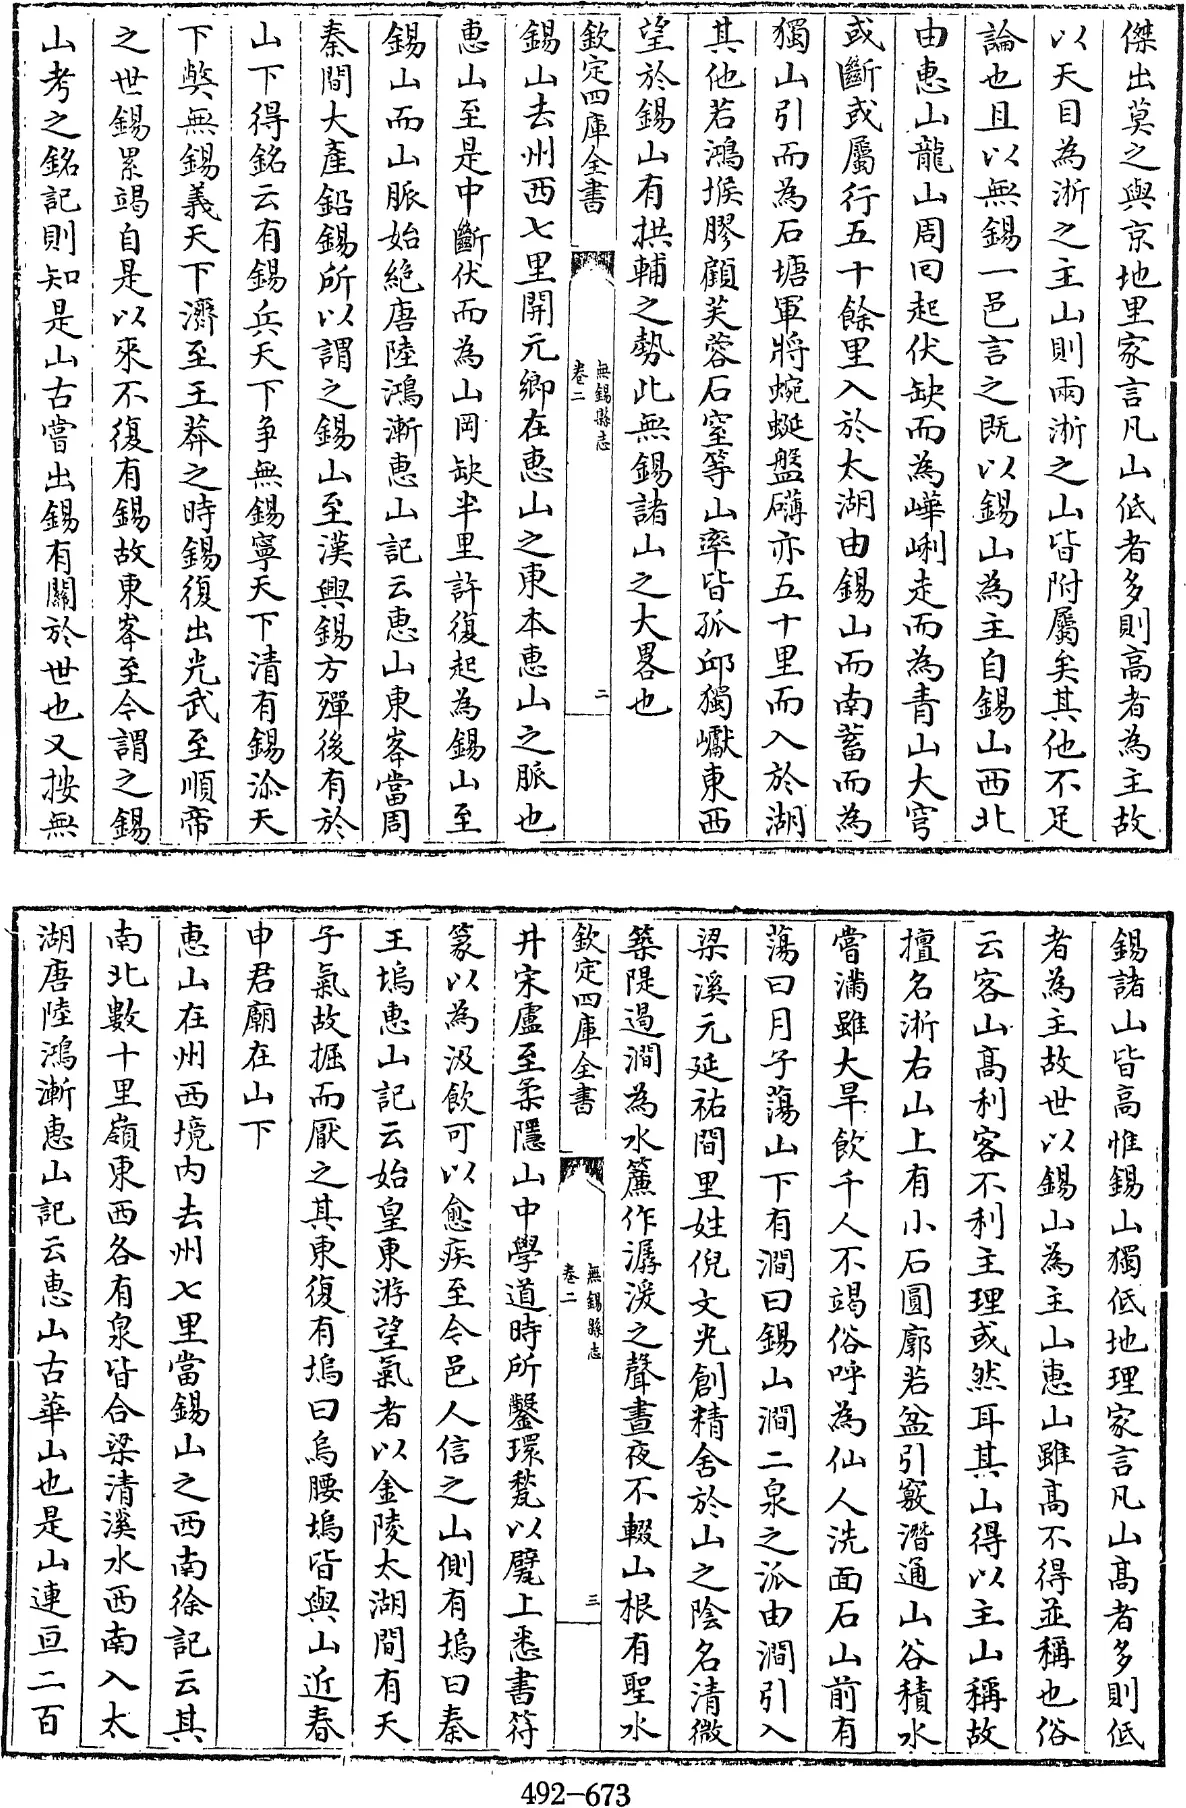 傑出莫之與京地里家言凡山低者多則高者為主故
以天目為浙之主山則兩浙之山皆附屬矣其他不足
論也且以無錫一邑言之既以錫山為主自錫山西北
由惠山龍山周回起伏缺而為嶂峢走而為青山大穹
或斷或屬行五十餘里入於太湖由錫山而南蓄而為
獨山引而為石塘軍將蜿蜒盤礴亦五十里而入於湖
其他若鴻堠膠顧芙蓉石室等山率皆孤邱獨巘東西
望於錫山有拱輔之勢此無錫諸山之大畧也
欽定四庫全書
無錫縣志
卷二
二
錫山去州西七里開元鄉在惠山之東本惠山之脈也
惠山至是中斷伏而為山岡缺半里許復起為錫山至
錫山而山脈始絕唐陸鴻漸惠山記云惠山東峯當周
秦間大產鉛錫所以謂之錫山至漢興錫方殫後有於
山下得銘云有錫兵天下争無錫寧天下清有錫沴天
下獘無錫義天下濟至王莽之時錫復出光武至順帝
之世錫累竭自是以來不復有錫故東峯至今謂之錫
山考之銘記則知是山古嘗出錫有關於世也又按無
錫諸山皆高惟錫山獨低地理家言凡山高者多則低
者為主故世以錫山為主山惠山雖高不得並稱也俗
云客山高利客不利主理或然耳其山得以主山稱故
擅名浙右山上有小石圓廓若盆引竅潛通山谷積水
嘗滿雖大旱飲千人不竭俗呼為仙人洗面石山前有
蕩曰月子蕩山下有澗曰錫山澗二泉之派由澗引入
梁溪元延祐間里姓倪文光創精舍於山之陰名清微
築隄過澗為水簾作潺湲之聲晝夜不輟山根有聖水
欽定四庫全書
無錫縣志
卷二
三
井宋盧至柔隱山中學道時所鑿環甃以甓上悉書符
篆以為汲飲可以愈疾至今邑人信之山側有塢曰秦
王塢惠山記云始皇東游望氣者以金陵太湖間有天
子氣故掘而厭之其東復有塢曰烏腰塢皆與山近春
申君廟在山下
惠山在州西境内去州七里當錫山之西南徐記云其
南北數十里嶺東西各有泉皆合梁清溪水西南入太
湖唐陸鴻漸惠山記云惠山古華山也是山連亘二百
492-673